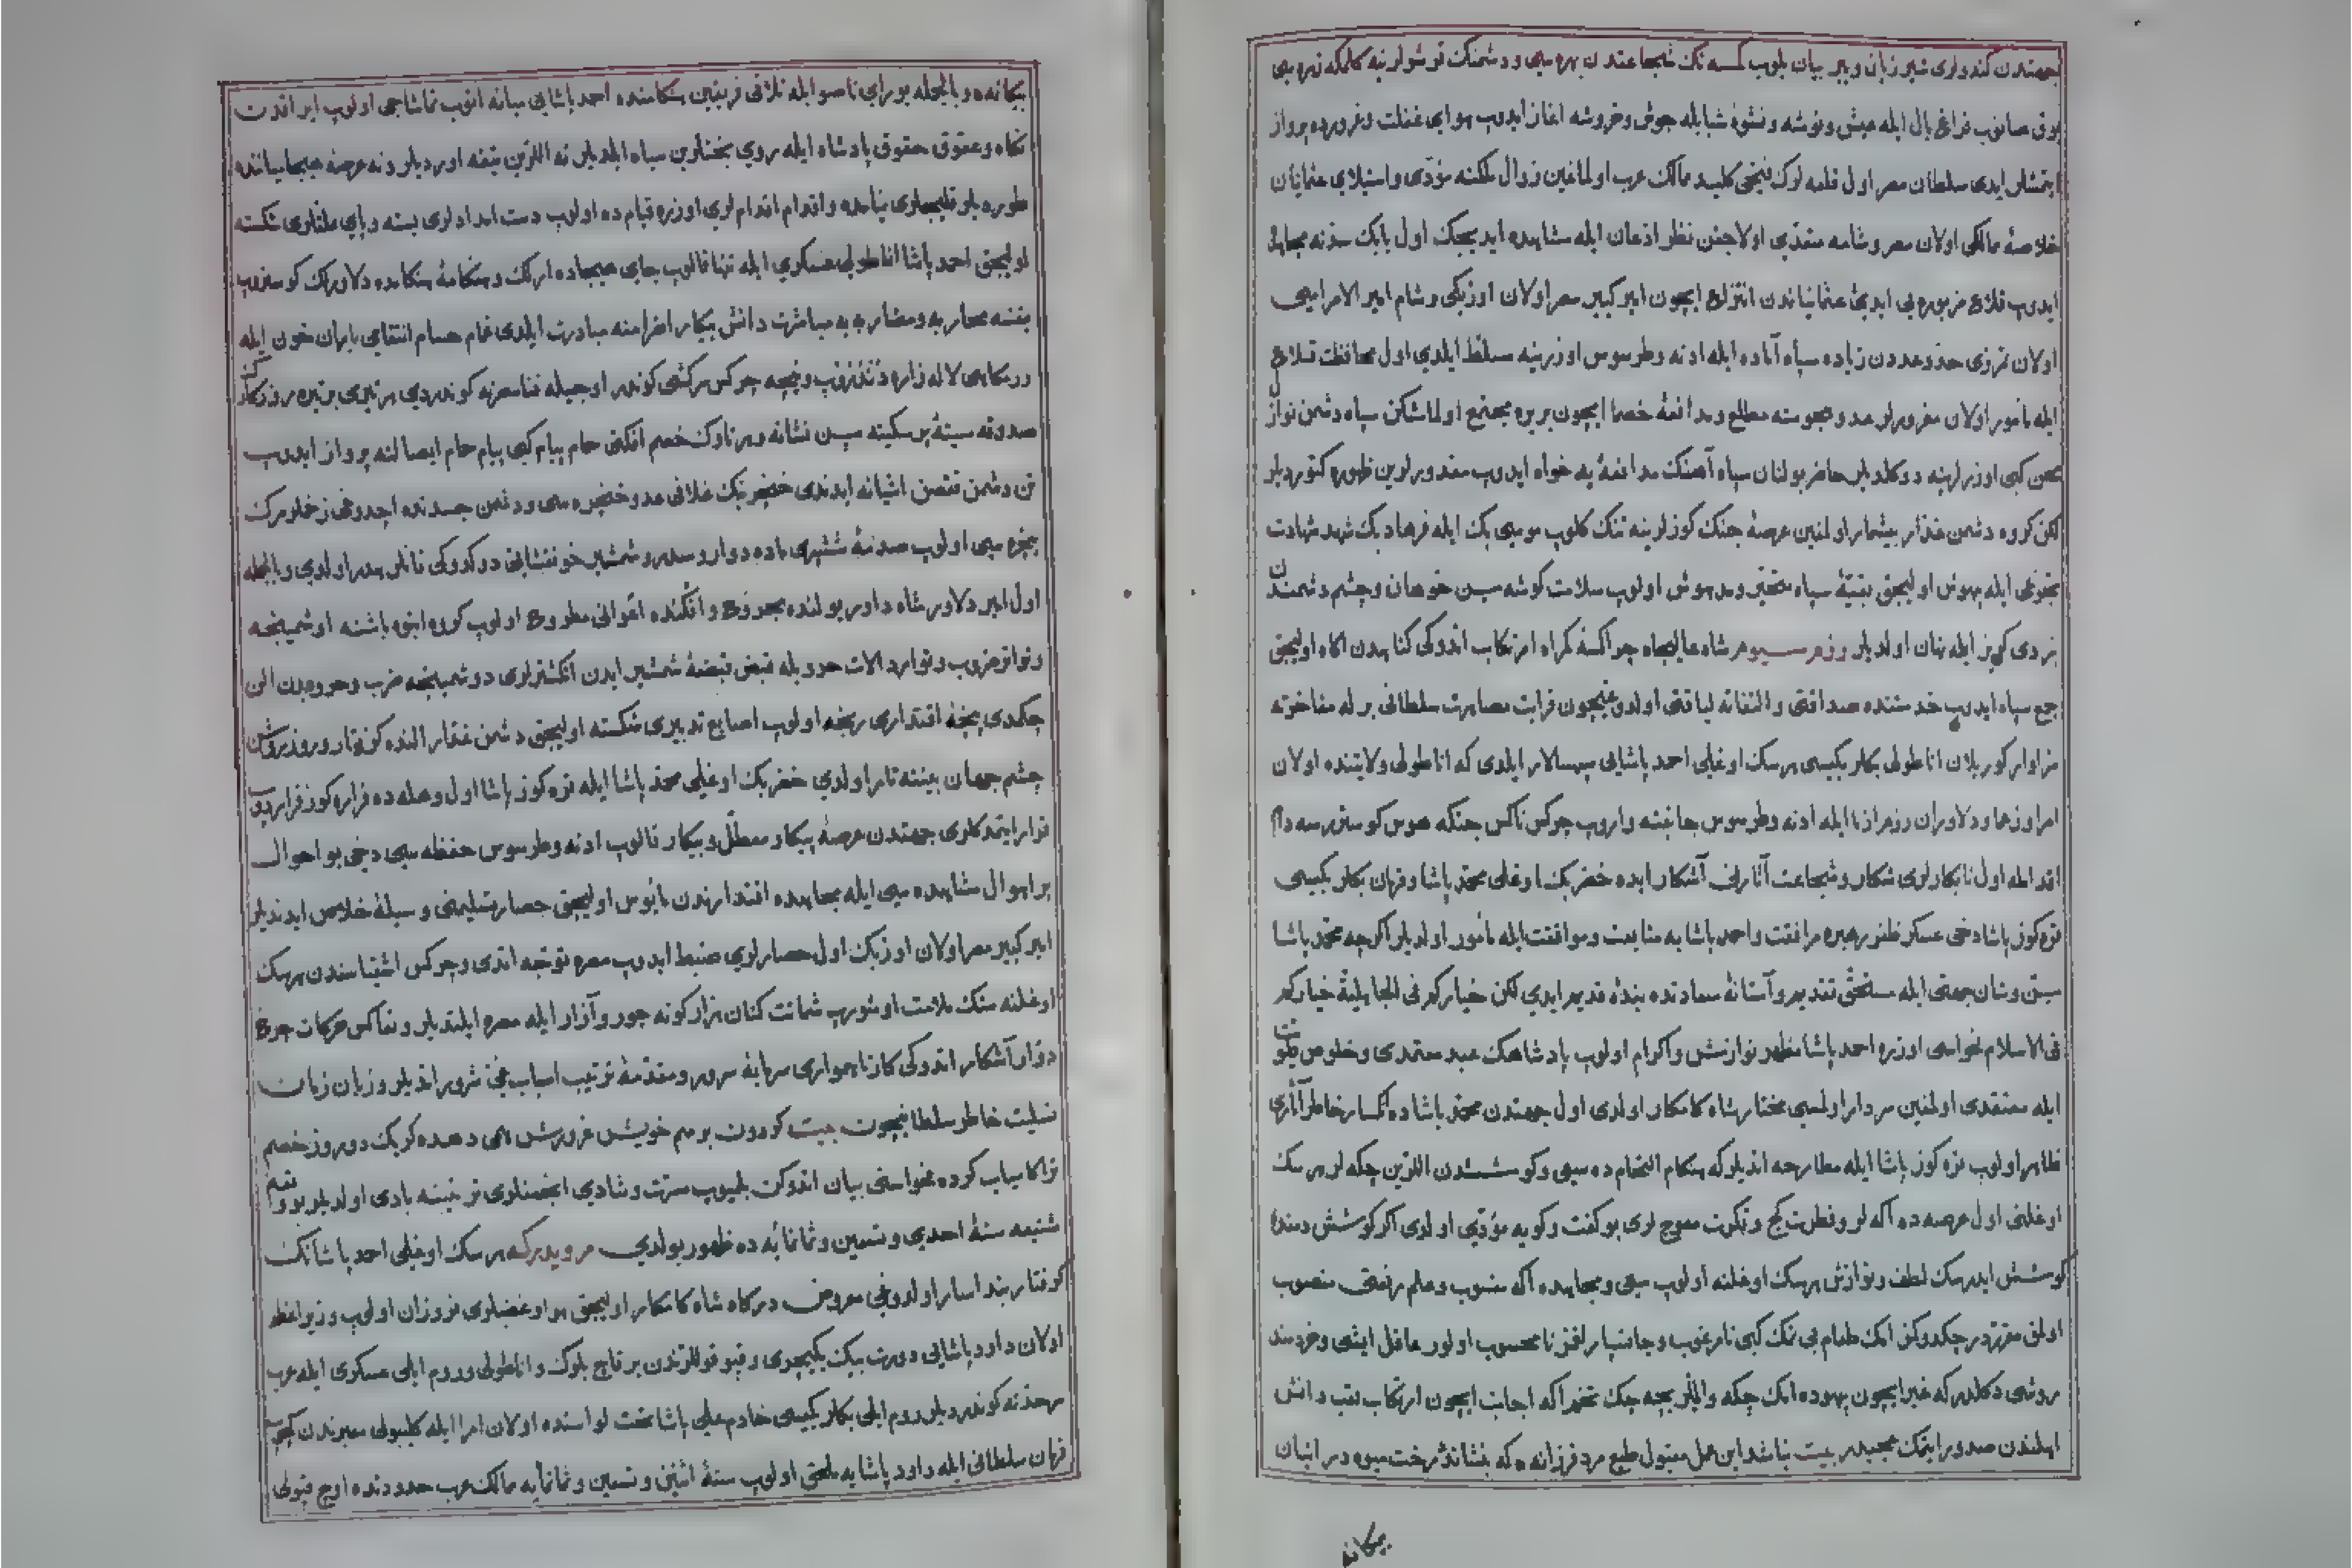 جهتدن کندولری شیر ژیان و ببر بیان بلوب کمسه نک شجاعتدن بهره سی و دشمنک قرشولرینه کلمکه زهره سی
یوق صانوب فراغ بال ایله عیش و نوشه و نشوهٔ شبابله جوش و خروشه اغاز ایدوب هوای غفلت و غرورده پرواز
ایتمشلر ایدی سلطان مصر اول قلعه لرک فتحی کلید ممالک عرب اولماغین زوال ملکنه مؤدی و استیلای عثمانیان
خلاصهٔ ممالکی اولان مصر و شامه متعدی اولاجغن نظر اذعان ایله مشاهده ایدیجک اول بابک سدنه مجاهده
ایدوب قلاع مزبوره یی ایدیٔ عثمانیاندن انتزاع ایچون امیر کبیر مصر اولان اوزبکی و شام امیر الامراسی
اولان تمروزی حد و عددن زیاده سپاه آماده ایله ادنه و طرسوس اوزرینه مسلط ایلدی اول محافظت قلاع
ایله مأمور اولان مغرورلر عدو هجومنه مطلع و مدافعهٔ خصما ایچون بریره مجتمع اولماشکن سپاه دشمن نوازل
محن کبی اوزرلرینه دوکلدیلر حاضر بولنان سپاه آهنک مدافعهٔ بدخواه ایدوب مقدورلرین ظهوره کتوردیلر
لکن کروه دشمن غدار بیشمار اولمغین عرصهٔ جنک کوزلرینه تنک کلوب موسی بک ایله فرهاد بک شهد شهادت
ایله بیهوش اولیجق بقیهٔ سپاه متحیر و مدهوش اولوب سلامت کوشه سن خواهان و چشم دشمندن
کریز ایله نهان اولدیلر رزم سیوم شاه عالیجاه چراکسهٔ کمراه ارتکاب اتدوکی کناهدن اکاه اولیجق
جمع سپاه ایدوب خدمتنده صداقتی و التفاته لیاقتی اولدوغیچون قرابت مصاهرت سلطانی برله مفاخرته
سزاوار کوریلان اناطولی بکلربکیسی هرسک اوغلی احمد پاشایی سپهسالار ایلدی که اناطولی ولایتنده اولان
امرا و زعما و دلاوران رزم ازما ایله ادنه و طرسوس جانبنه واروب چرکس ناکس جنکه هوس کوسترسه دام
اقدامله اول نابکارلری شکار و شجاعت آثارلرن آشکار ایده خضر بک اوغلی محمد پاشا و قرمان بکلربکیسی
قره کوز پاشا دخی عسکر ظفر رهبره مرافقت و احمد پاشایه متابعت و موافقت ایله مأمور اولدیلر اکرچه محمد پاشا
سن و شان جهتی ایله مستحق تقدیم و آستانهٔ سعادتده بندهٔ قدیم ایدی لکن خیارکم فی الجاهلیة خیارکم
فی الاسلام فحواسی اوزره احمد پاشا مظهر نوازش و اکرام اولوب پادشاهک عبد معتمدی و خلوص
ایله معتقدی اولمغین سردار اولمسی مختار شاه کامکار اولدی اول جهتدن محمد پاشاده انکسار خاطر آثاری
ظاهر اولوب قره کوز پاشا ایله مطارحه اتدیلر که هنکام التحامده سعی و کوششدن اللرین چکه لر هرسک
اوغلنی اول عرصه ده اکه لر و فطرت کج و فکرت معوج لری بو کفت و کویه مؤدی اولدی اکر کوشش
کوشش ایدرسک لطف و نوازش هرسک اوغلنه اولوب سعی و مجاهده اکه منسوب و علم رفعتی منصوب
اولق مقرردر چکدوکن امک طعام بی نمک کبی نامرغوب و جانسپارلغز نامحسوب اولور عاقل ایشی و خردمند
روشی دکلدر که غیر ایچون بیهوده امک چکه و اللر بجه جک تخم اکه اجانب ایچون ارتکاب تعب دانش
اهلندن صدور ایتمک عجیدر بیت نباشد این عمل مقبول طبع مرد فرزانه که بنشاند درخت میوه در انبان
بیکانه
بیکانه و بالجمله بو رای ناصو ایله تلاقی فریقین هنکامنده احمد پاشایی میانه اتوب تماشاجی اولوب ایراقدن
نکاه و عقوق حقوق پادشاه ایله روی بختلرین سیاه ایلدیلر نه اللرین تیغه اوردیلر و نه عرصهٔ هیجا میاننده
طوردیلر قلیجلری نیامده و اقدام اقدام لری اوزره قیامده اولوب دست امدادلری بسته و پای شکسته
اولیجق احمد پاشا اناطولی عسکری ایله تنها قالوب جای هیجاده ارلک و هنکامهٔ هنکامده دلاورلک کوستروب
بنفسه محاربه و مضاربه یه مباشرت و آتش پیکار اضرامنه مبادرت ایلدی غمام حسام انتقامی باران خون ایله
رزمکاهی لاله زاره دوندروب و نیجه چرکس سرکشی کوندر اوجیله فناسمتنه کوندردی هر تیری روزکار
صدوقه سینهٔ پرسکینه سن نشانه و هر ناوک خصم افکنی حمام پیام کبی پیام حمام ایصالنه پرواز ایدوب
تن دشمن قفسن اشیانه ایدندی خنجرنک غلافی عدو خنجره سی و دشمن جسدنده اچدوغی زخملر مرک
پنجره سی اولوب صدمهٔ ششپری باده دوار و سدر و شمشیر خونفشانی دوکدوکی قانلر هدر اولدی و بالجمله
اول امیر دلاور شاه داور یولنده مجروح و افکنده اعوانی مطروح اولوب کروه انبوه باشنه اوشمیخجه
و تواتر ضروب و توارد الات حرو بله قبض قبضهٔ شمشیر ایدن انکشترلری دوشمینجه ضرب و حروبدن الن
چکمدی پنجهٔ اقتداری رنجه اولوب اصابع تدبیری شکسته اولیجق دشمن غدار النده کرفتار و روز روشن
چشم جهان بیننه تار اولدی خضر بک اوغلی محمد پاشا ایله قره کوز پاشا اول وهله ده قراره کوز قرارتوب
فرار ایتدکلری جهتدن عرصهٔ پیکار معطل و بیکار قالوب ادنه و طرسوس حفظه سی دخی بو احوال
پر اهوال مشاهده سی ایله مجاهده اقتدارندن مأیوس اولیجق حصار تسلیمنی وسیلهٔ خلاص ایدندیلر
امیر کبیر مصر اولان اوزبک اول حصارلری ضبط ایدوب مصره توجه اتدی و چرکس اشقیاسندن هرسک
اوغلنه سنک ملامت اوشورب شماتت کنان هزار کونه جور و آزار ایله مصره ایلتدیلر و تعاکس حرکات چرخ
دوار آشکار اتدوکی کار ناهمواری سرمایهٔ سرور و مقدمهٔ ترتیب اسباب شرور اتدیلر و زبان زمان
تسلیت خاطر سلطانیچون بیت کردون برسم خویش فروش همی دهد کر یک دو روز خصم
ترا کامیاب کرد فحواسنی بیان اتدوکن بلمیوب مسرت و شادی انجمنلری تزیینینه بادی اولدیلر بو
شنیعه سنهٔ احدی و تسعین و ثمانمایه ده ظهور بولدی هرسک اوغلی احمد پاشانک
کرفتار بند اسار اولدوغی معروض درکاه شاه کامکار اولیجق اود غضبلری فروزان اولوب وزیر اعظم
اولان داود پاشایی درت بیک یکیچری و قپو قوللرندن بر قاچ بلوک و اناطولی و روم ایلی عسکری ایله عرب
سرحدنه کوندردیلر روم ایلی بکلربکیسی خادم علی پاشا تحت لواسنده اولان امرا ایله کلیبولی معبرندن کچوب
فرمان سلطانی ایله داود پاشایه ملحق اولوب سنهٔ اثنین و تسعین و ثمانمایه ممالک عرب حدودنده اوچ قپولی